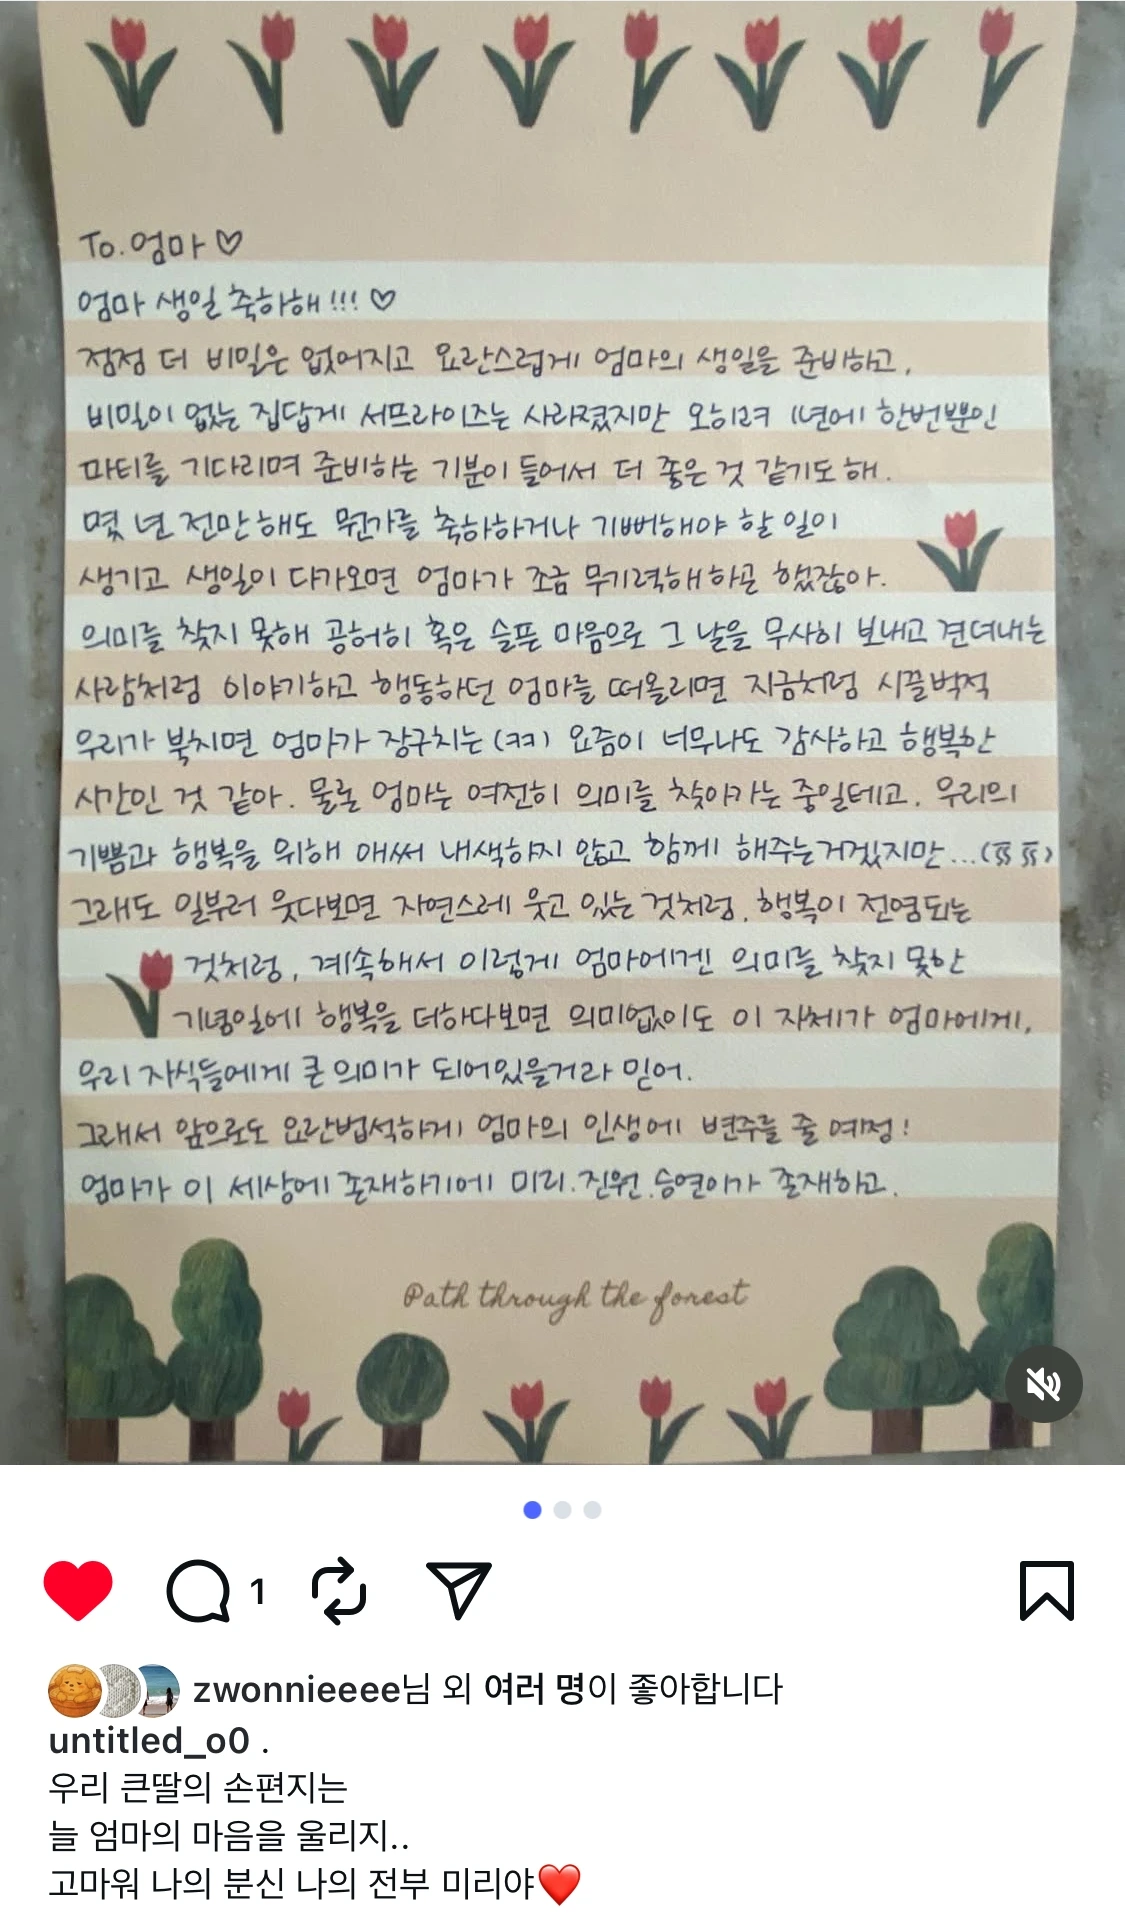 To. 엄마 ♡
엄마 생일 축하해 !!! ♡
점점 더 비밀은 없어지고 요란스럽게 엄마의 생일을 준비하고,
비밀이 없는 집답게 서프라이즈는 사라졌지만 오히려 1년에 한번뿐인
파티를 기다리며 준비하는 기분이 들어서 더 좋은 것 같기도 해.
몇 년 전만 해도 뭔가를 축하하거나 기뻐해야 할 일이
생기고 생일이 다가오면 엄마가 조금 무기력해 하곤 했잖아.
의미를 찾지 못해 공허히 혹은 슬픈 마음으로 그 날을 무사히 보내고 견뎌내는
사람처럼 이야기하고 행동하던 엄마를 떠올리면 지금처럼 시끌벅적
우리가 북치면 엄마가 장구치는 (ㅋㅋ) 요즘이 너무나도 감사하고 행복한
시간인 것 같아. 물론 엄마는 여전히 의미를 찾아가는 중일테고, 우리의
기쁨과 행복을 위해 애써 내색하지 않고 함께 해주는거겠지만...(ㅠㅠ)
그래도 일부러 웃다보면 자연스레 웃고 있는 것처럼, 행복이 전염되는
것처럼, 계속해서 이렇게 엄마에겐 의미를 찾지 못한
기념일에 행복을 더하다보면 의미없이도 이 자체가 엄마에게,
우리 자식들에게 큰 의미가 되어있을거라 믿어.
그래서 앞으로도 요란법석하게 엄마의 인생에 변주를 줄 예정!
엄마가 이 세상에 존재하기에 미리.진원.승연이가 존재하고,
Path through the forest
1
zwonnieeee님 외 여러 명이 좋아합니다
untitled_o0 .
우리 큰딸의 손편지는
늘 엄마의 마음을 울리지..
고마워 나의 분신 나의 전부 미리야❤️